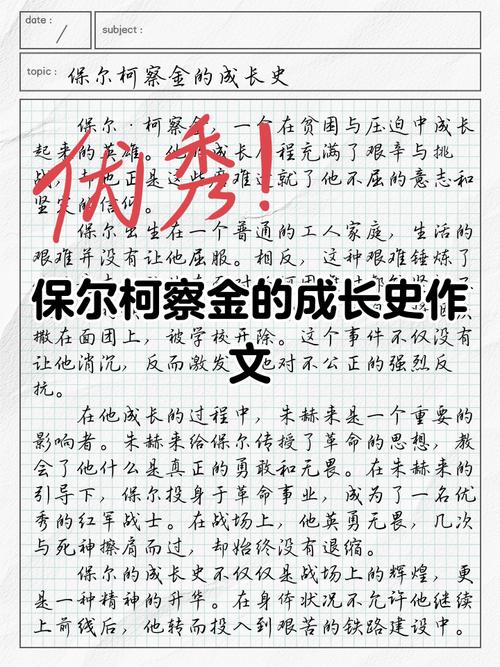 date :
subject :
topic : 保尔柯察金的成长史
保尔·柯察金，一个在贫困与压迫中成长
起来的英雄。他的成长过程充满了艰辛与挑
战，也正是这些苦难造就了他不屈的意志和
坚定的信仰。
优秀！
保尔出生在一个普通的工人家庭，生活的
艰难并没有让他屈服。相反，这种艰难锤炼了
保尔柯察金的成长史作
文
撒在面团上，被学校开除。这个事件不仅没有
让他消沉，反而激发 他对不公正的强烈反
抗。
在他成长的过程中，朱赫来是一个重要的
影响者。朱赫来给保尔传授了革命的思想，教
会了他什么是真正的勇敢和无畏。在朱赫来的
引导下，保尔投身于革命事业，成为了一名优
秀的红军战士。在战场上，他英勇无畏，几次
与死神擦肩而过，却始终没有退缩。
保尔的成长史不仅仅是战场上的辉煌，更
是一种精神的升华。在身体状况不允许他继续
上前线后，他转而投入到艰苦的铁路建设中。